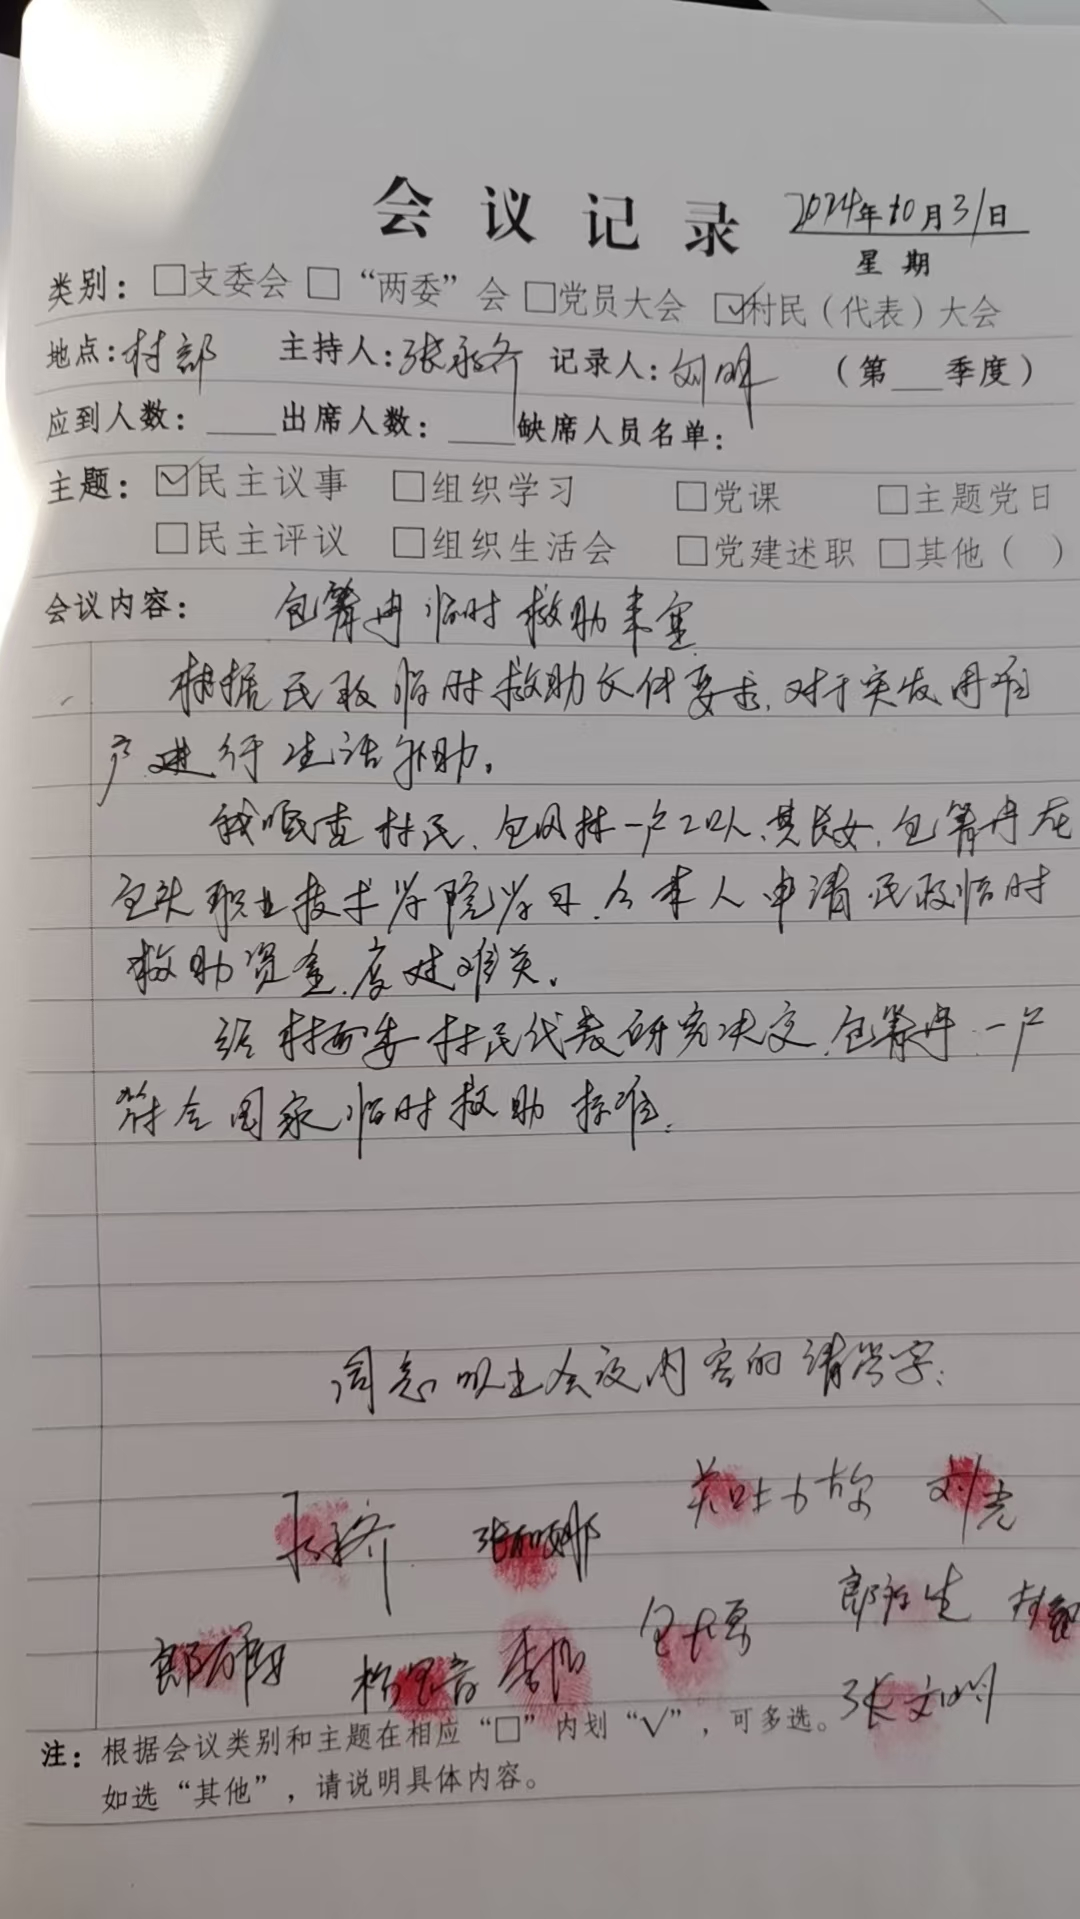 会议记录
2024年10月31日
星期
类别：□支委会 □“两委”会 □党员大会 ☑村民（代表）大会
地点：村部 主持人：张永齐 记录人：刘明 （第___季度）
应到人数：____出席人数：____缺席人员名单：
主题：☑民主议事 □组织学习 □党课 □主题党日
□民主评议 □组织生活会 □党建述职 □其他（ ）
会议内容： 包菁冉临时救助
根据民政临时救助文件要求，对于突发困难
户进行生活补助。
我嘎查村民，包凤林一户2口人，其长女，包菁冉在
包头职业技术学院学习，今本人申请民政临时
救助资金，度过难关。
经村两委村民代表研究决定，包菁冉一户
符合国家临时救助标准。
同意以上会议内容的请签字：
张永齐 刘亮
张文明
注：根据会议类别和主题在相应“□”内划“√”，可多选。
如选“其他”，请说明具体内容。